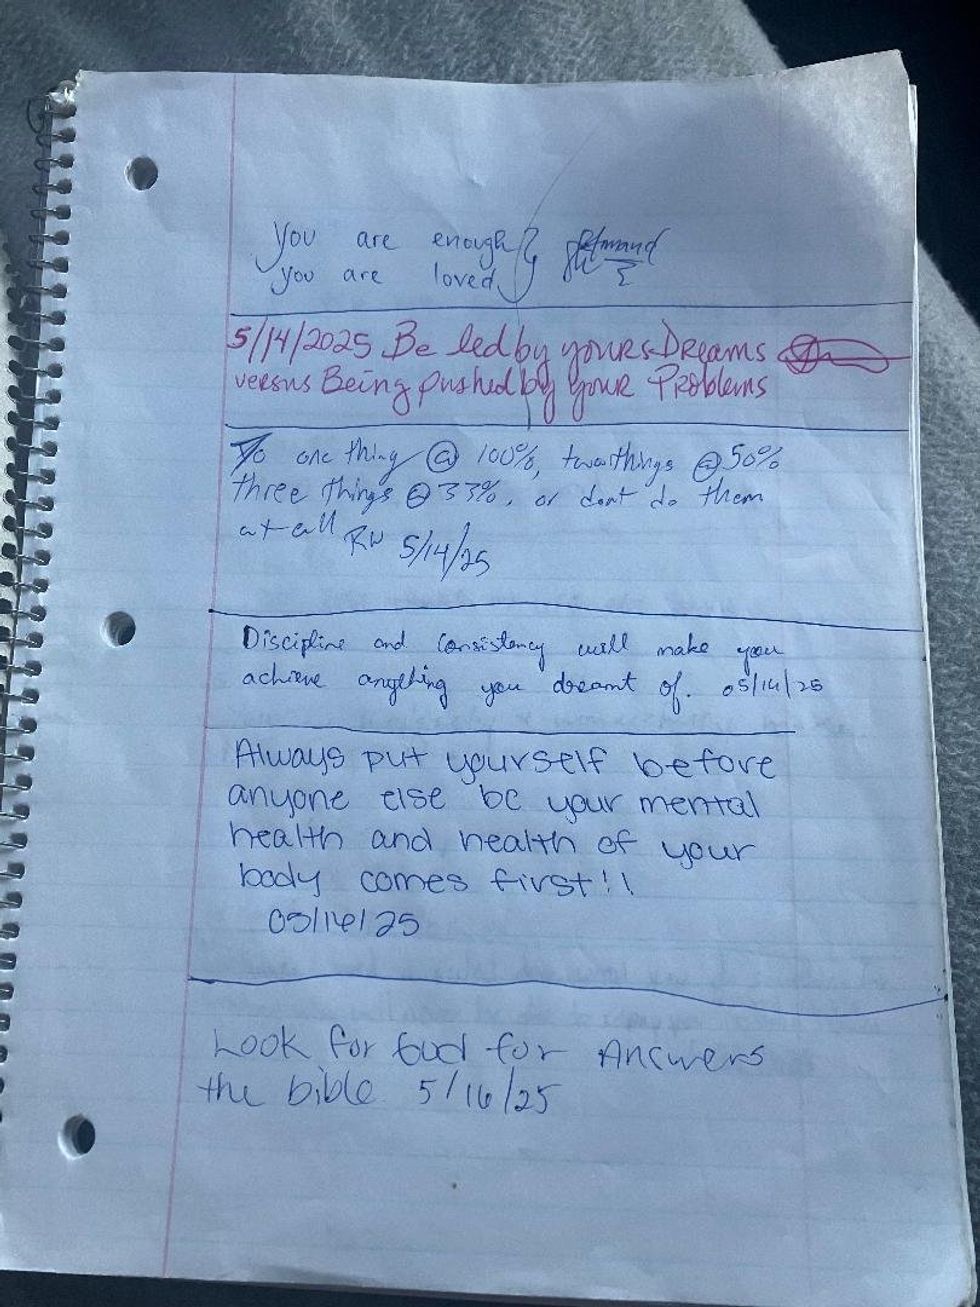 you are enough
you are loved
5/14/2025 Be led by yours Dreams
versus Being pushed by your Problems
Do one thing @ 100%, two things @ 50%
three things @ 33%. or dont do them
at all RW 5/14/25
Discipline and Consistency will make you
achieve anything you dreamt of. 05/14/25
Always put yourself before
anyone else bc your mental
health and health of your
body comes first!!
05/16/25
Look for God for Answers
the bible 5/16/25